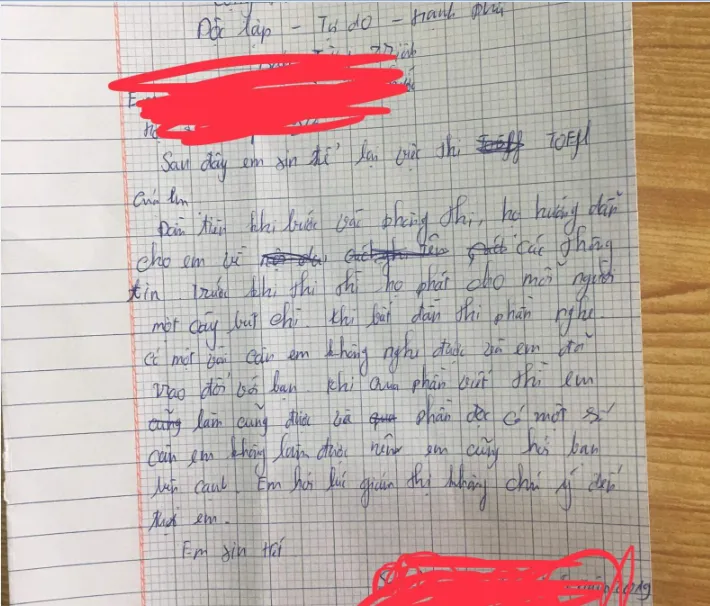 Độc lập - Tự do - Hạnh phú
Sau đây em xin kể lại việc thi TOEFL
của em
Đầu tiên khi bước vào phòng thi, họ hướng dẫn
cho em về các thông
tin. Trước khi thi thì họ phát cho mỗi người
một cây bút chì. Khi bắt đầu thi phần nghe
có một vài câu em không nghe được và em đã
trao đổi với bạn. Khi qua phần viết thì em
làm cũng được và phần đọc có một số
câu em không làm được nên em cũng hỏi bạn
bên cạnh. Em hỏi lúc giám thị không chú ý đến
em.
Em xin